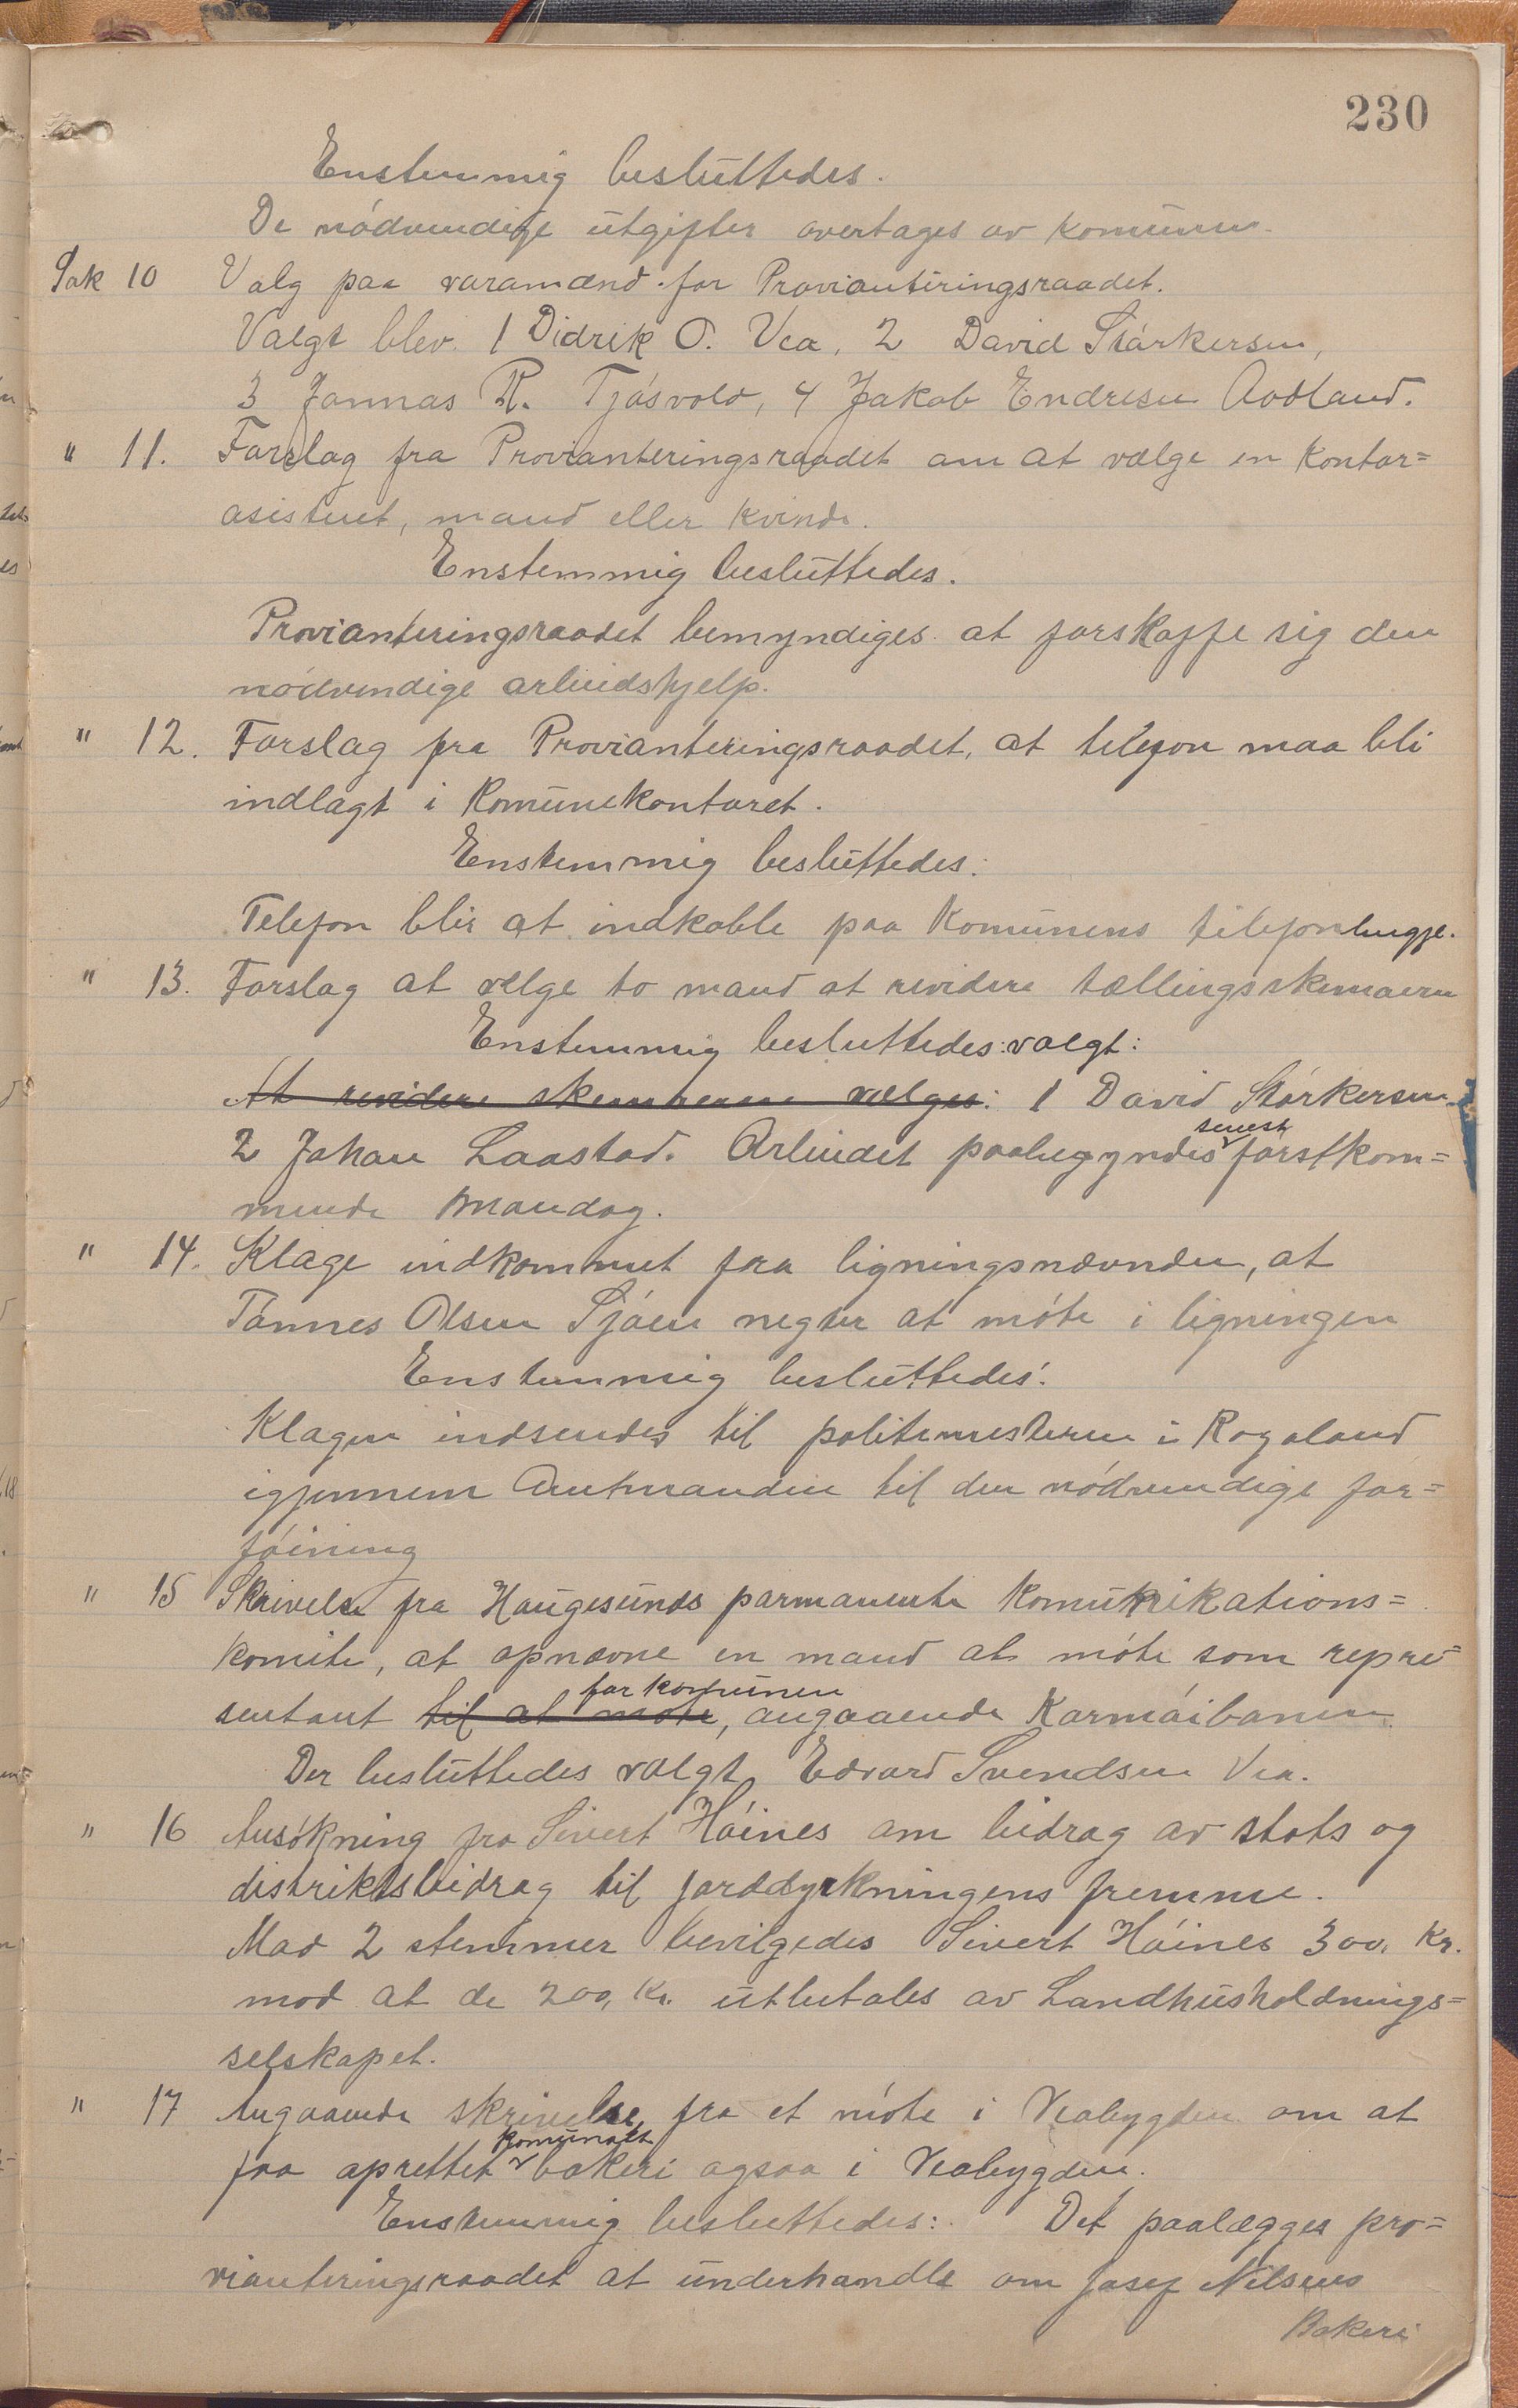 230
Enstemmig besluttedes.
De nödvendige utgifter overtages av komunen.
Sak 10 Valg paa varamænd for Provianteringsraadet.
Valgt blev. 1 Didrik O. Vea, 2 David Stórkersen,
3 Jonnas R. Tjósvold, 4 Jakob Endresen Aodland.
" 11. Forslag fra Provianteringsraadet om at vælge en kontor=
asistent, mand eller kvinde.
Enstemmig besluttedes.
Provianteringsraadet bemyndiges at forskaffe sig den
nödvendige arbeidshjelp.
" 12. Forslag fra Provianteringsraadet, at telefon maa bli
indlagt i Komunekontoret.
Enstemmig besluttedes:
Telefon blir at indkoble paa Komunens telefon
" 13. Forslag at velge to mand at revidere tællingsskemaern
Enstemmig besluttedes: valgt:
At revidere skemaerne vælges: 1 David Stórkersen
2 Johan Laastad. Arbeidet paabegyndes senest forstkom=
mende mandag.
" 14. Klage indkommet fra ligningsnævnden, at
Tónnes Olsen Sjóen negter at móte i ligningen
Enstemmig besluttedes:
Klagen indsendes til politimesteren i Rogaland
igjennem Amtmanden til den nódvendige for=
fóining
" 15 Skrivelse fra Haugesunds parmanente Komunikations=
komite, at opnævne en mand at móte som repre=
sentant til at móte for komunen, angaaende Karmóibanen.
Der besluttedes valgt Edvard Svendsen Vea.
" 16 Ansókning fra Sivert Hóines om bidrag av stats og
distriktsbidrag til jorddyrkningens fremme.
Mod 2 stemmer bevilgedes Sivert Hóines 300, Kr.
mod at de 200, Kr. utbetales av Landhusholdnings=
selskapet.
" 17 Angaaende skrivelse, fra et móte i Veabygden om at
faa oprettet komunalt bakeri ogsaa i Veabygden.
Enstemmig besluttedes: Det paalægges pro=
vianteringsraadet at underhandle om Josef Nilsens
Bakeri